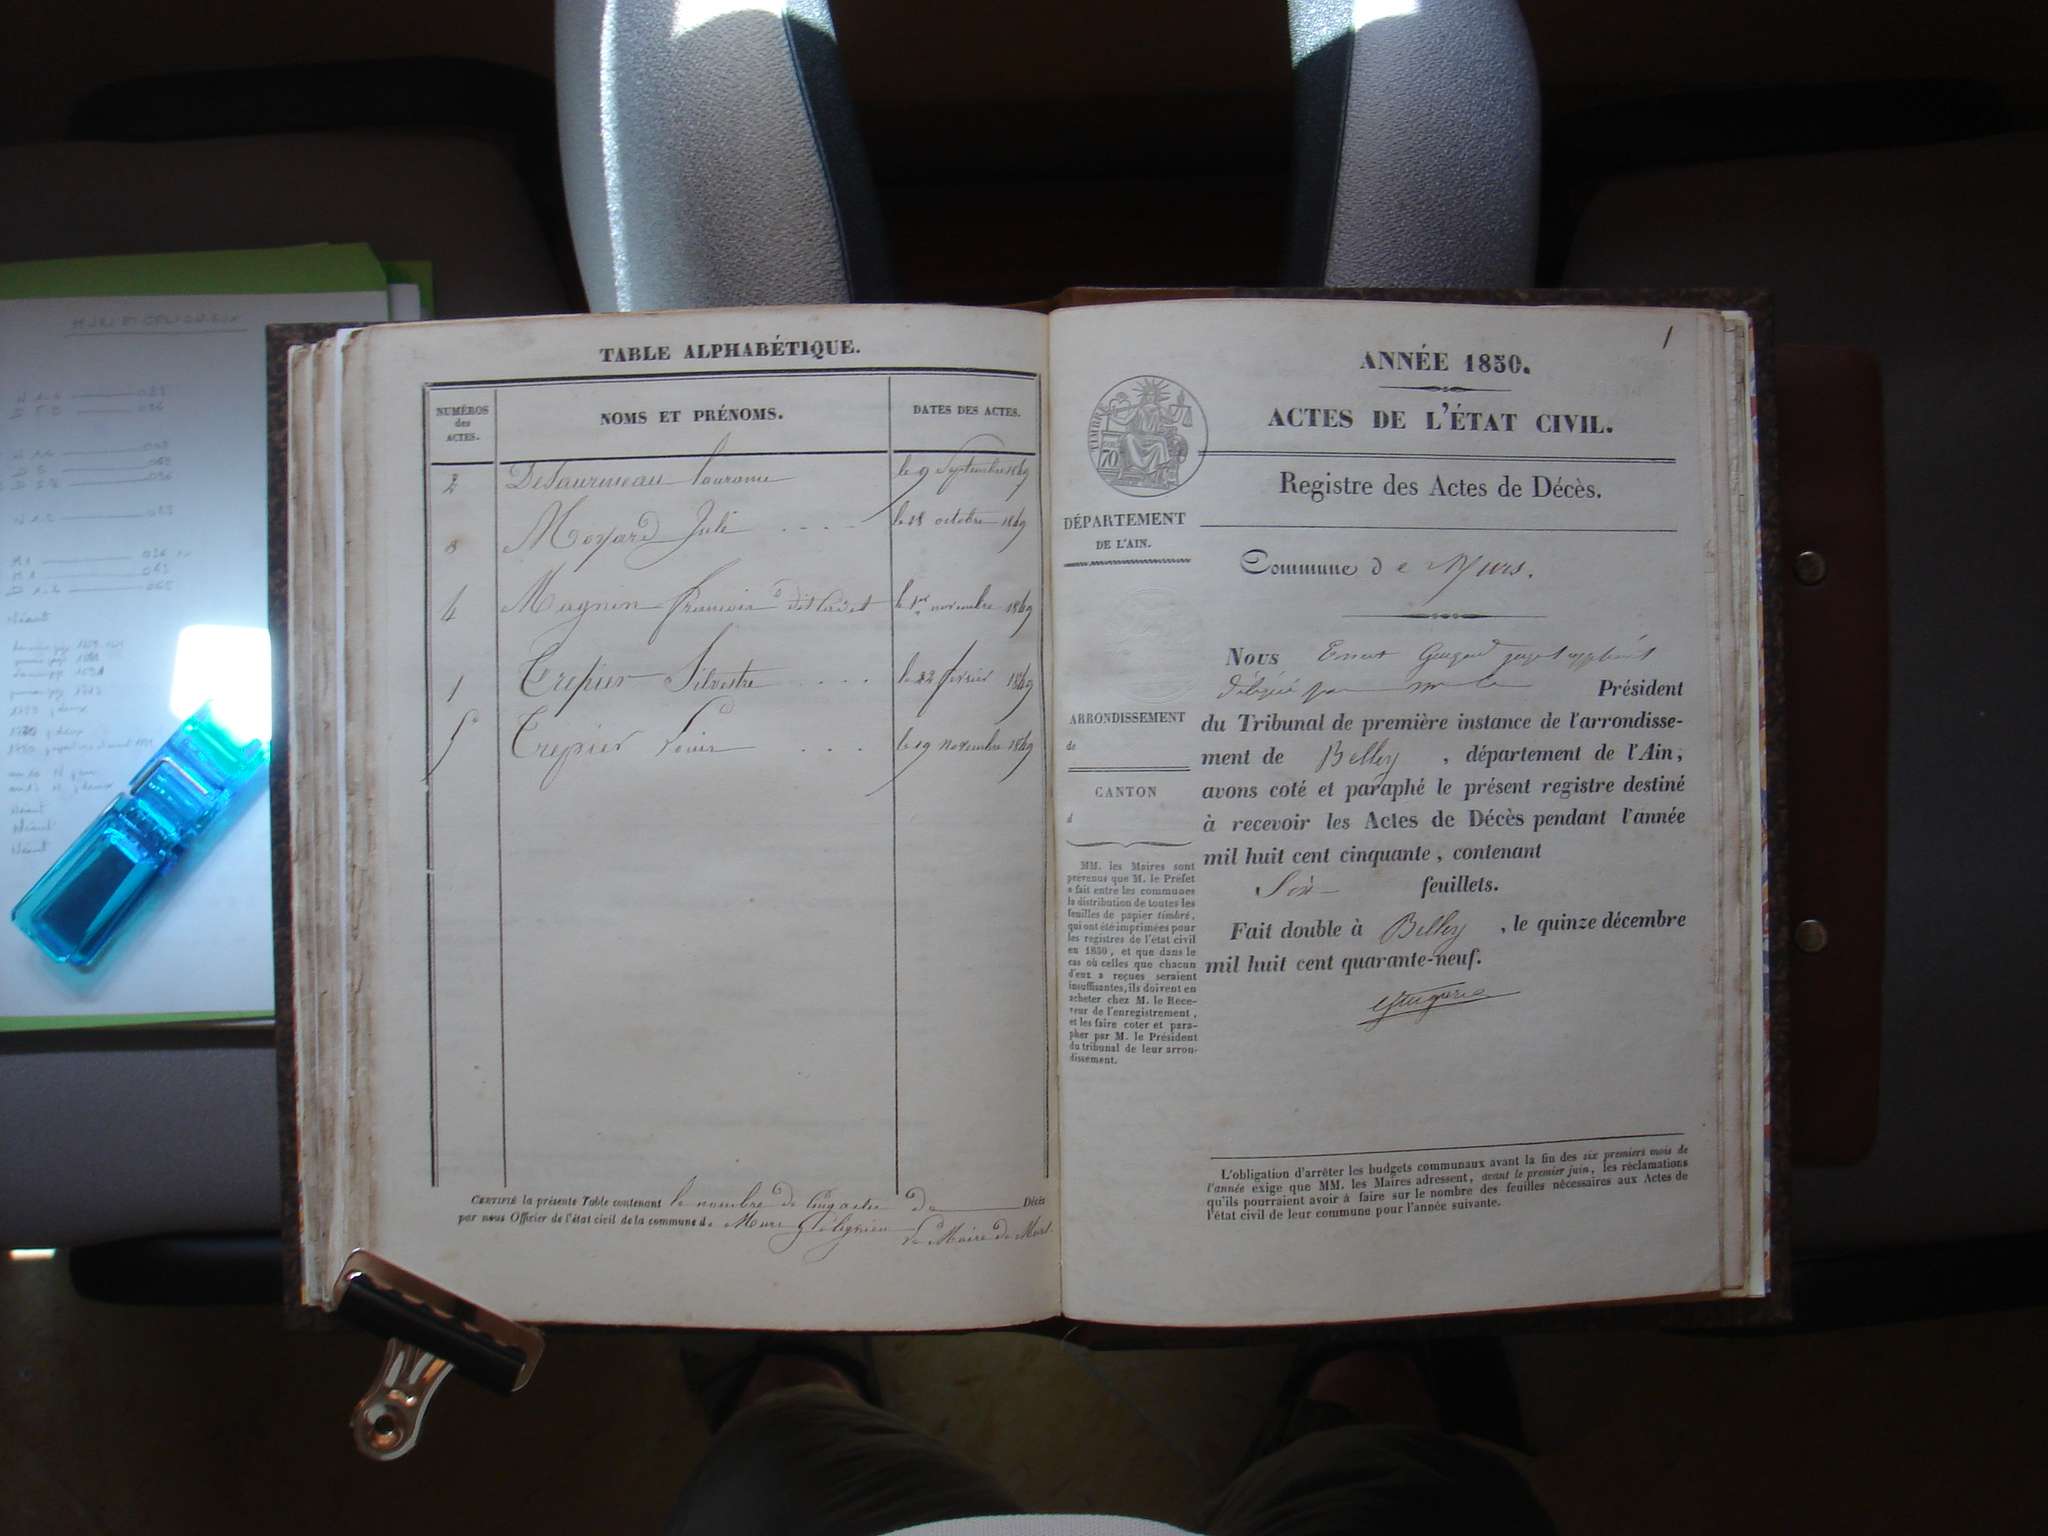 TABLE ALPHABÉTIQUE.
NUMÉROS
des
ACTES.
NOMS ET PRÉNOMS.
DATES DES ACTES.
2 le 9 Septembre 1849
3 Moyard Julie le 18 octobre 1849
4 Magnin francois dit Cadet le 1er novembre 1849
1 Crepier Silvestre le 22 fevrier 1849
5 Crepier Louis le 19 novembre 1849
CERTIFIÉ la présente Table contenant le nombre de Cinq actes de Décès
par nous Officier de l'état civil de la commune de Murs Gélignieu Le Maire de Murs
1
ANNÉE 1850.
ACTES DE L'ÉTAT CIVIL.
Registre des Actes de Décès.
TIMBRE
70
DÉPARTEMENT
DE L'AIN.
Commune de Murs.
Nous Ernest juge suppléant
délégué par mr le Président
du Tribunal de première instance de l'arrondisse-
ment de Belley, département de l'Ain,
avons coté et paraphé le présent registre destiné
à recevoir les Actes de Décès pendant l'année
mil huit cent cinquante, contenant
Six feuillets.
Fait double à Belley, le quinze décembre
mil huit cent quarante-neuf.
ARRONDISSEMENT
de
CANTON
d
MM. les Maires sont
prévenus que M. le Préfet
a fait entre les communes
la distribution de toutes les
feuilles de papier timbré,
qui ont été imprimées pour
les registres de l'état civil
en 1850, et que dans le
cas où celles que chacun
d'eux a reçues seraient
insuffisantes, ils doivent en
acheter chez M. le Rece-
veur de l'enregistrement,
et les faire coter et para-
pher par M. le Président
du tribunal de leur arron-
dissement.
L'obligation d'arrêter les budgets communaux avant la fin des six premiers mois de
l'année exige que MM. les Maires adressent, avant le premier juin, les réclamations
qu'ils pourraient avoir à faire sur le nombre des feuilles nécessaires aux Actes de
l'état civil de leur commune pour l'année suivante.